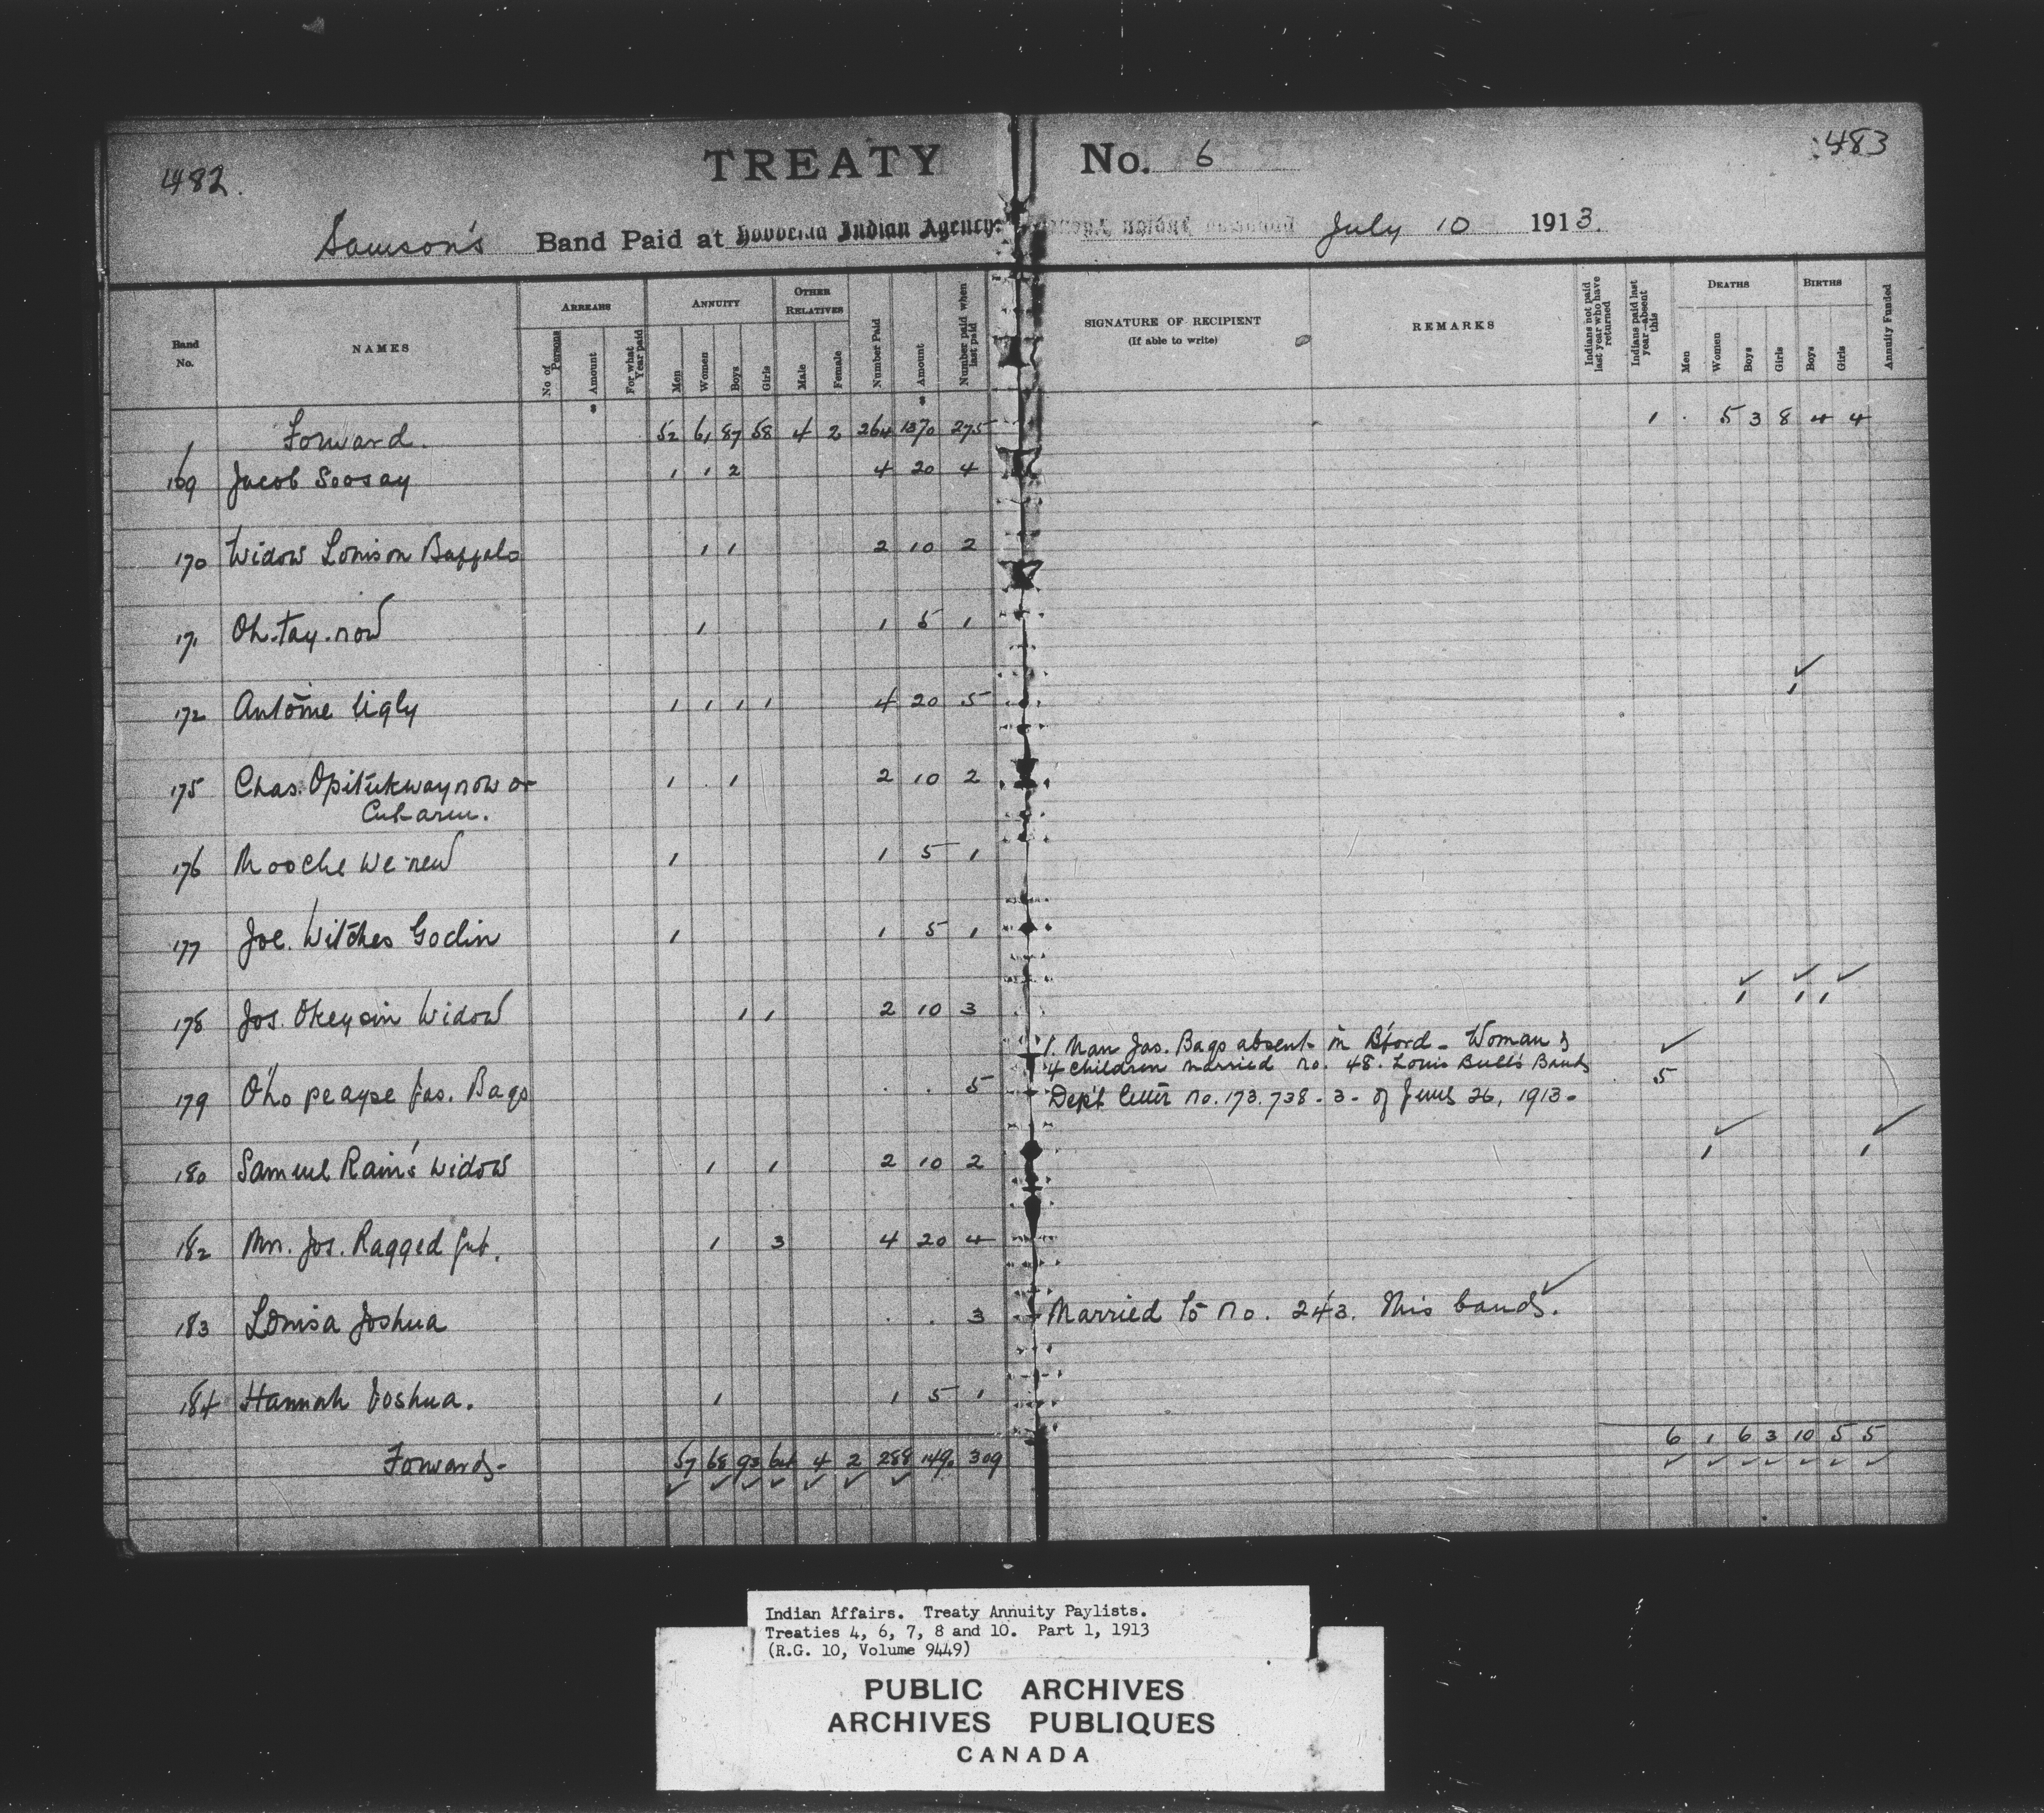 482.
TREATY No. 6
483
Samson's Band Paid at Hobbema Indian Agency. July 10 1913.
Band No. NAMES ARREARS No of Persons Amount For what Year paid ANNUITY Men Women Boys Girls OTHER RELATIVES Male Female Number Paid Amount Number paid when last paid SIGNATURE OF RECIPIENT (If able to write) REMARKS Indians not paid last year who have returned Indians paid last year—absent this DEATHS Men Women Boys Girls BIRTHS Boys Girls Annuity Funded
Forward. 52 61 87 58 4 2 264 1370 275 1 5 3 8 4 4
169 Jacob Soosay 1 1 2 4 20 4
170 Widow Louison Buffalo 1 1 2 10 2
171 Oh.tay.now 1 1 5 1
172 Antoine Ugly 1 1 1 1 4 20 5 1
175 Chas. Opitukwaynow or 1 1 2 10 2
Cut-arm.
176 Mooche we new 1 1 5 1
177 Joe. Witches Godin 1 1 5 1
178 Jos. Okeysin Widow 1 1 2 10 3 1 1 1
1. Man Jas. Bags absent in B'ford - Woman &
4 children married no. 48. Louis Bull's Band
179 Oho peayse Jas. Bags 5 5
Dep't letter no. 173.738-3- of June 26, 1913-
180 Samuel Rain's Widow 1 1 2 10 2 1 1
182 Mrs. Jos. Ragged Gut. 1 3 4 20 4
183 Louisa Joshua 3 Married to No. 243. This band.
184 Hannah Joshua. 1 1 5 1
Forward- 57 68 93 64 4 2 288 1490 309 6 1 6 3 10 5 5
Indian Affairs. Treaty Annuity Paylists.
Treaties 4, 6, 7, 8 and 10. Part 1, 1913
(R.G. 10, Volume 9449)
PUBLIC ARCHIVES
ARCHIVES PUBLIQUES
CANADA